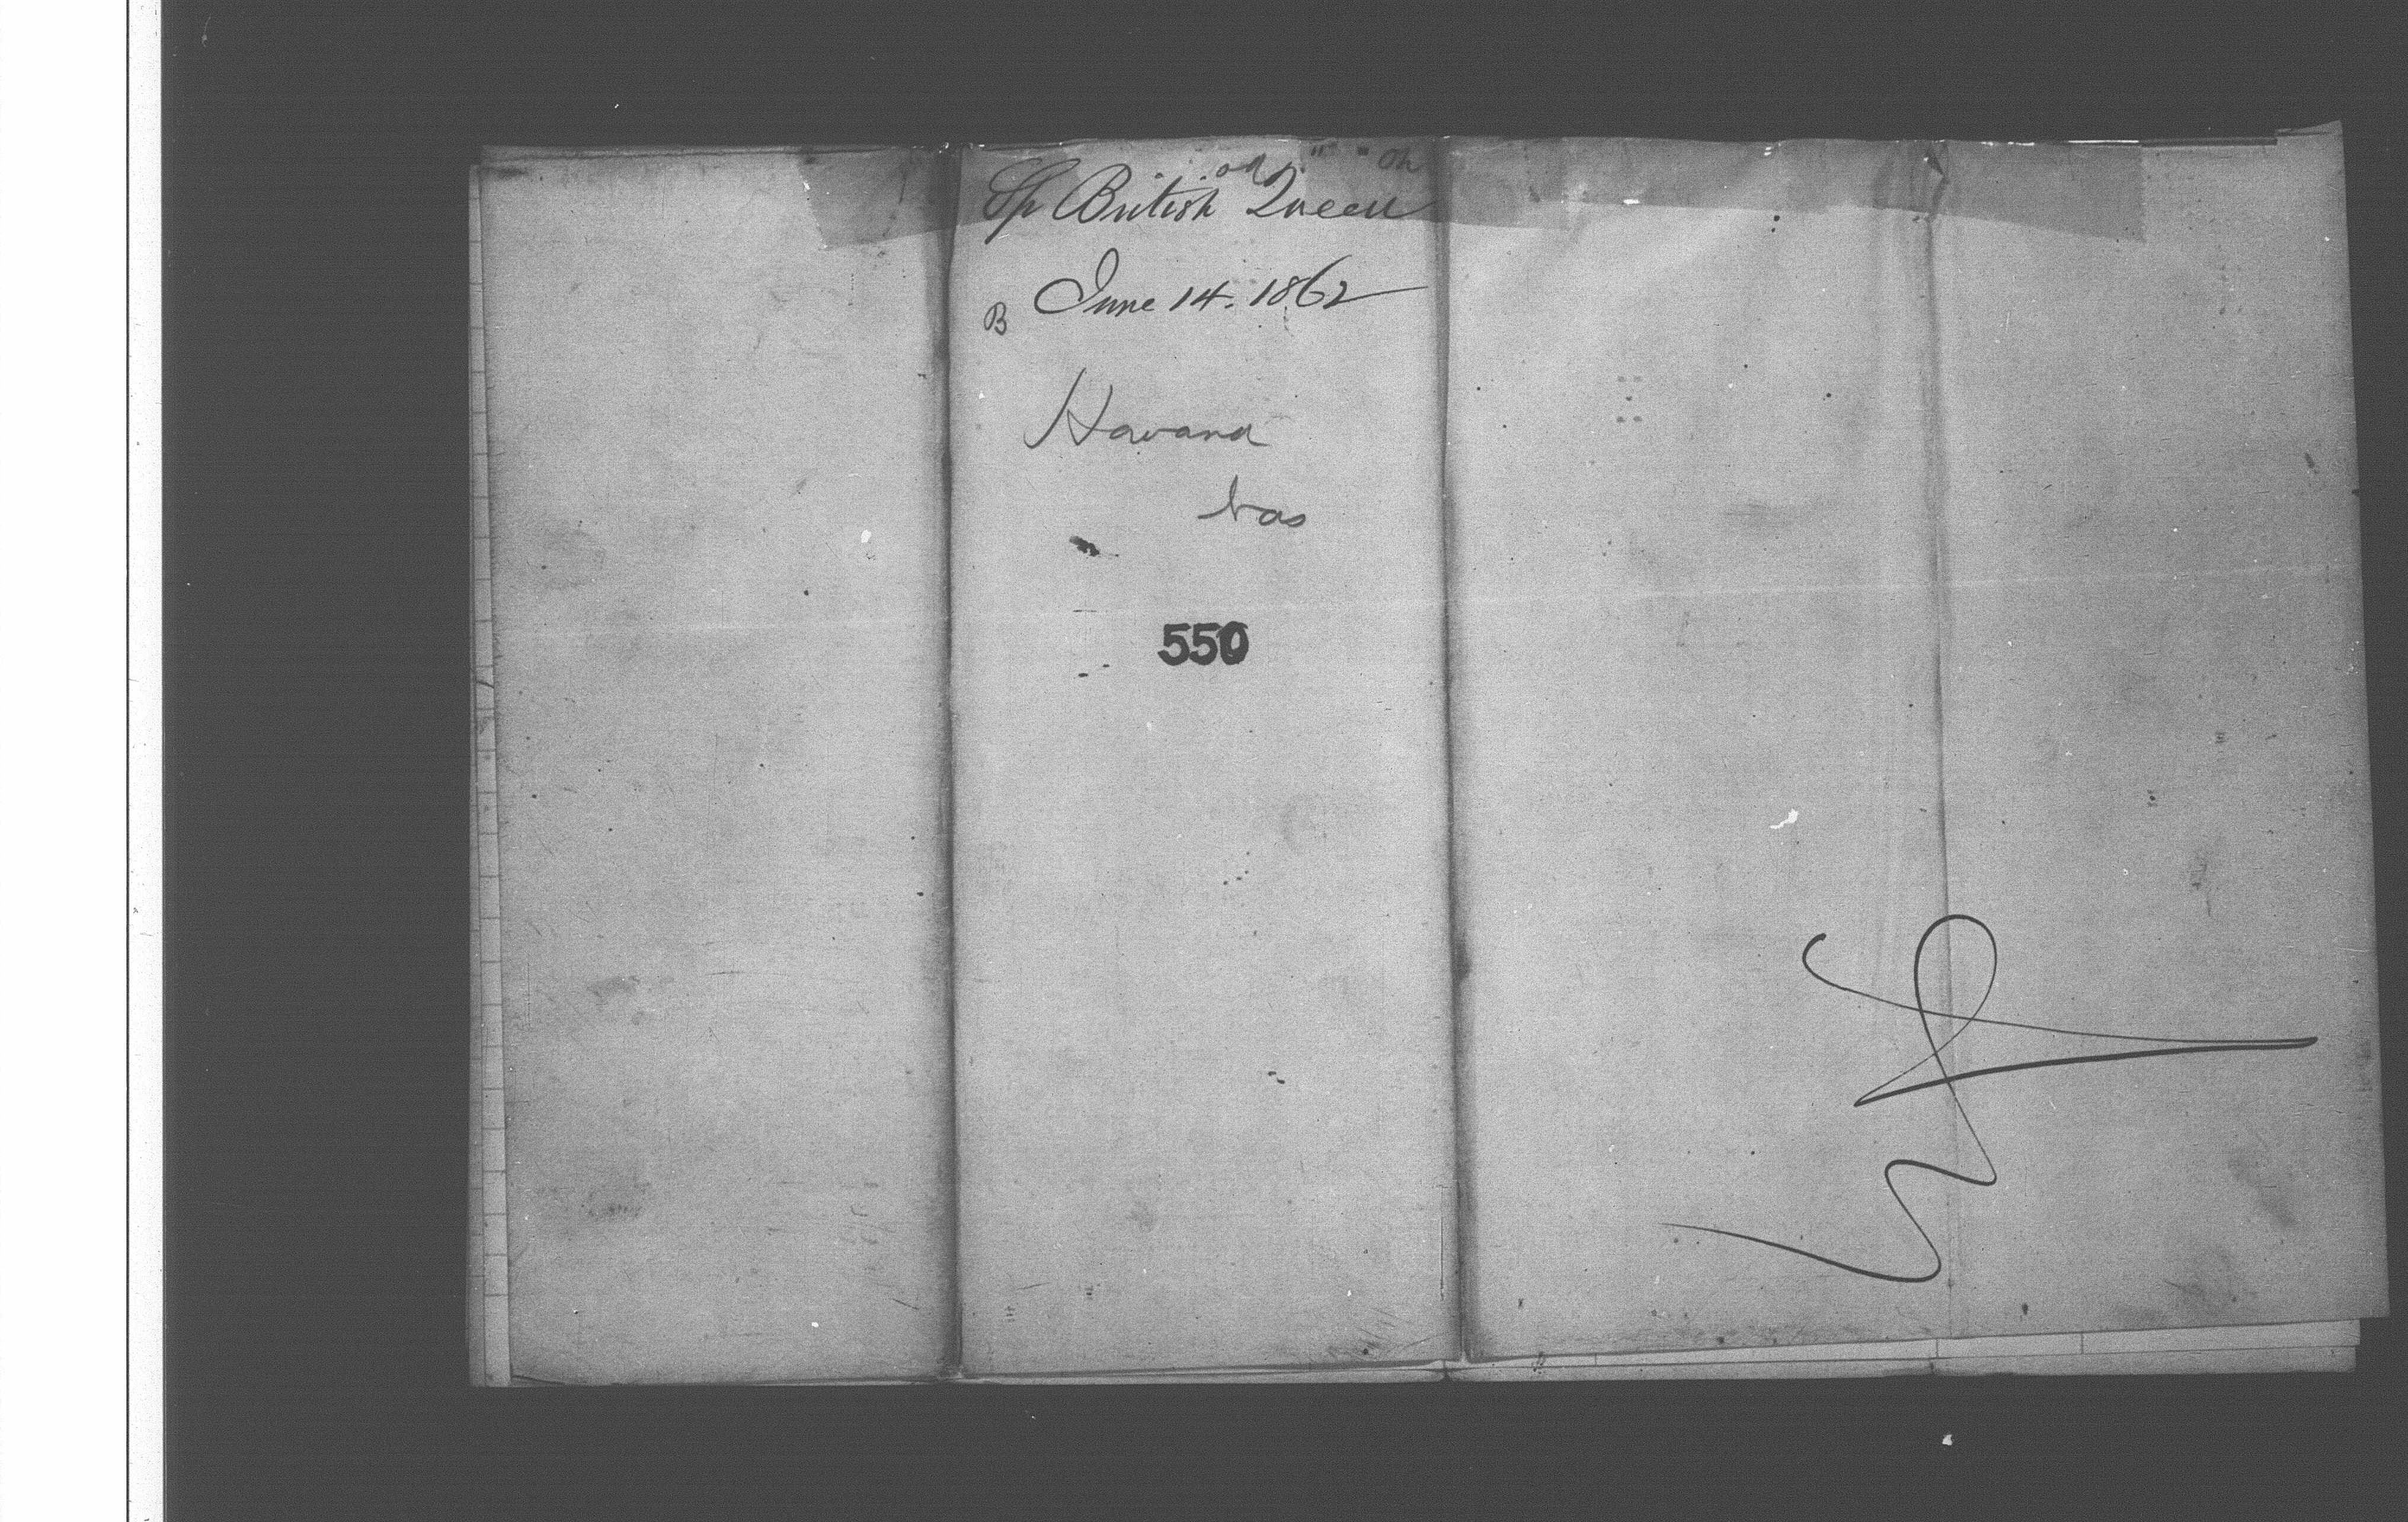 Sp British Queen
B June 14. 1862
Havana
Nas
550